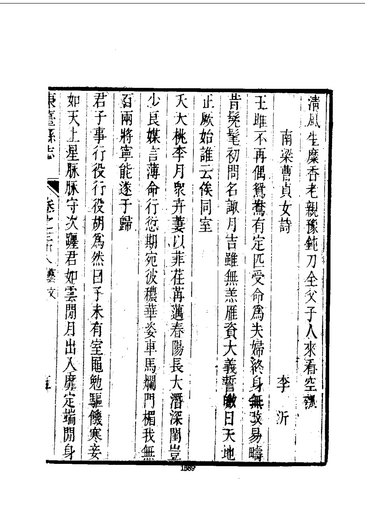 清風生麋香老親豫鈍刀全父子人來看空
南梁曹貞女詩
李沂
王雎不再偶鴛鴦有定匹受命為夫婦終身無改易疇
昔髮髦初問名諏月吉雖無羔雁資大義誓皦日天地
正厥始誰云俟同室
夭夭桃李月聚卉萋以菲荏苒邁春陽長大潛深閨豈
少良媒言薄命行愆期宛彼穠華姿車馬爛門楣我無
百兩將寧能遂于歸
君子事行役行役胡為然曰予未有室黽勉驅饑寒妾
如天上星脉脉守次躔君如雲間月出入靡定端閒身
東臺縣志
卷之三十八藝文
1589